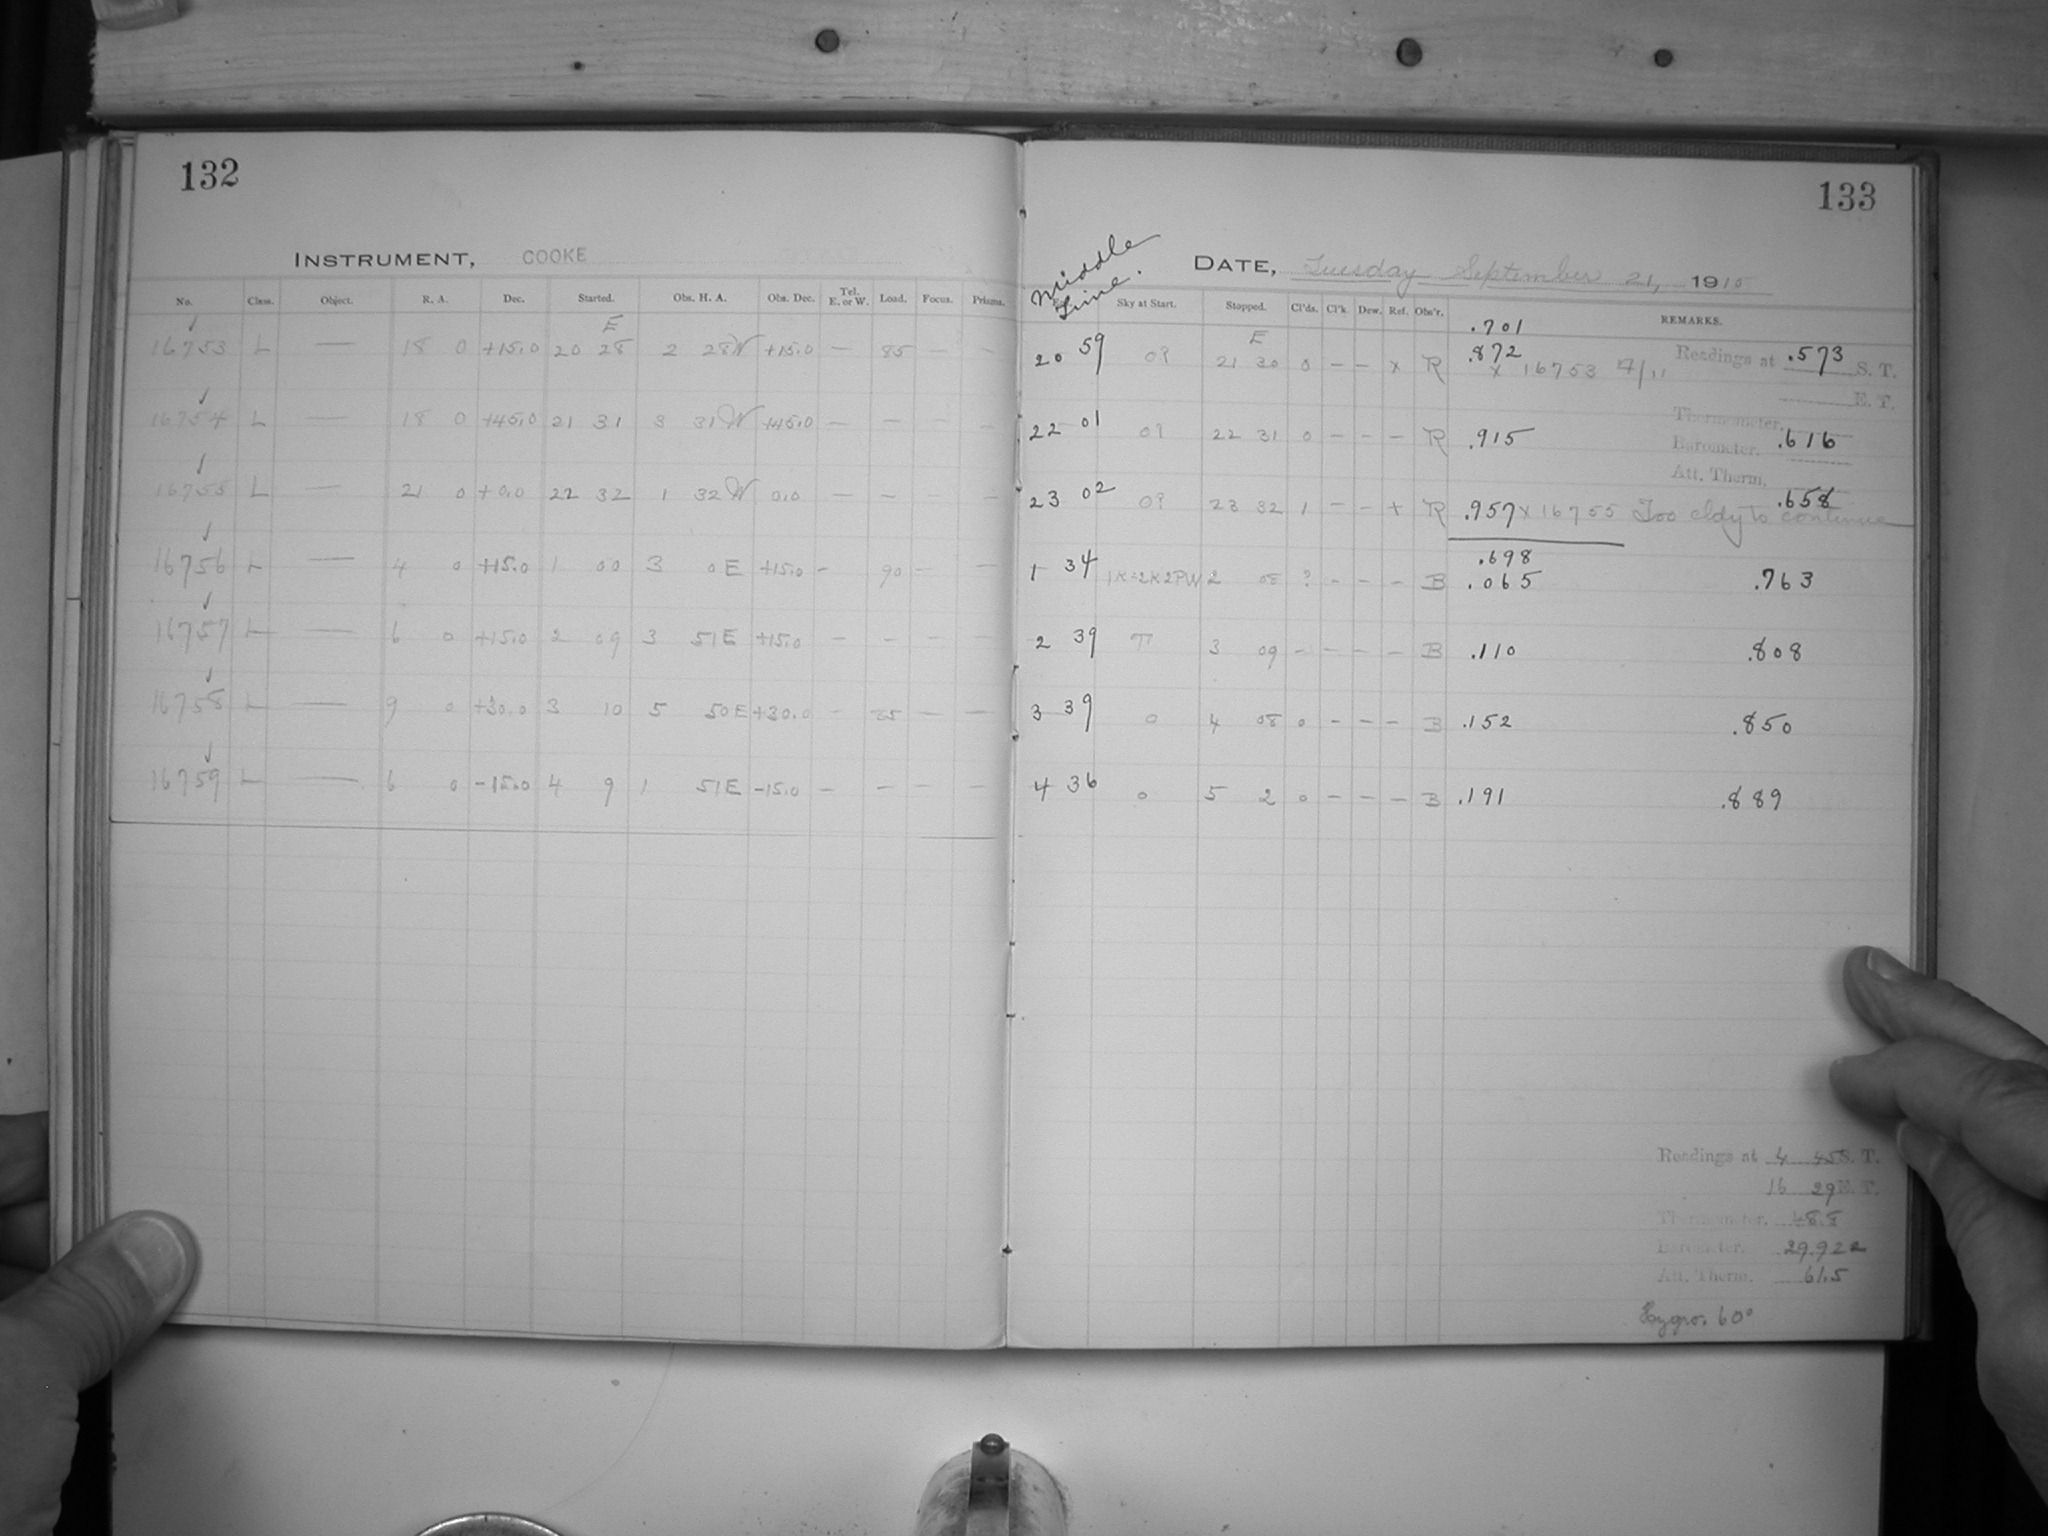 132
INSTRUMENT, COOKE
No. Class. Object. R. A. Dec. Started. Obs. H. A. Obs. Dec. Tel. E. or W. Load. Focus. Prisms.
E
16753 L — 18 0 +15.0 20 28 2 28W +15.0 — 85 — —
16754 L — 18 0 +45.0 21 31 3 31W +45.0 — — — —
16755 L — 21 0 +0.0 22 32 1 32W 0.0 — — — —
16756 L — 4 0 +15.0 1 00 3 0E +15.0 — 90 — —
16757 L — 6 0 +15.0 2 09 3 51E +15.0 — — — —
16758 L — 9 0 +30.0 3 10 5 50E +30.0 — 85 — —
16759 L — 6 0 -15.0 4 9 1 51E -15.0 — — — —
133
Middle Time.
DATE, Tuesday September 21, 1915
Sky at Start. Stopped. Cl'ds. Cl'k. Dew. Ref. Obs'r. REMARKS.
.701
E
20 59 0? 21 30 0 — — x R .872 Readings at .573 S. T.
x 16753
E. T.
Thermometer.
22 01 0? 22 31 0 — — — R .915 Barometer. .616
Att. Therm.
.658
23 02 0? 23 32 1 — — + R .957 x 16755 Too cldy to continue
.698
1 34 2 08 ? — — — B .065 .763
2 39 3 09 — — — — B .110 .808
3 39 0 4 08 0 — — — B .152 .850
4 36 0 5 2 0 — — — B .191 .889
Readings at 4 45 S. T.
16 29 E. T.
Thermometer. 48.8
Barometer. 29.922
Att. Therm. 61.5
Hygro. 60°